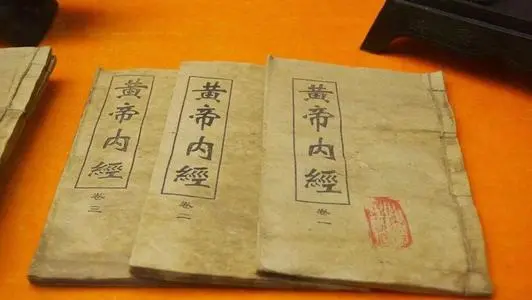 黄帝内經
卷三
黄帝内經
卷二
黄帝内經
卷一